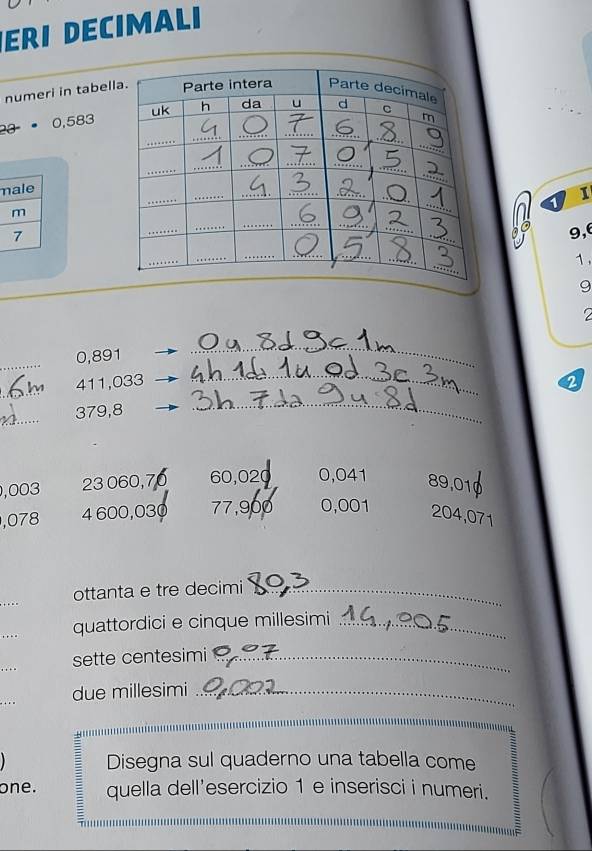 ERI DECIMALI
numeri in tabella.
23 • 0,583
Parte intera Parte decimale
uk h da u d c m
4 0 7 6 8 9
1 0 7 0 5 2
4 3 2 0 1
6 9 2 3
0 , 5 8 3
male
m
7
1 I
9,6
1,
9
2
0,891 → 0u 8d 9c 1m
6m 411,033 → 4h 1da 1u 0d 3c 3m
379,8 → 3h 7da 9u 8d
2
0,003 23 060,70 60,020 0,041 89,010
,078 4 600,030 77,900 0,001 204,071
ottanta e tre decimi 80,3
quattordici e cinque millesimi 14,005
sette centesimi 0,07
due millesimi 0,002
)
one.
Disegna sul quaderno una tabella come
quella dell'esercizio 1 e inserisci i numeri.